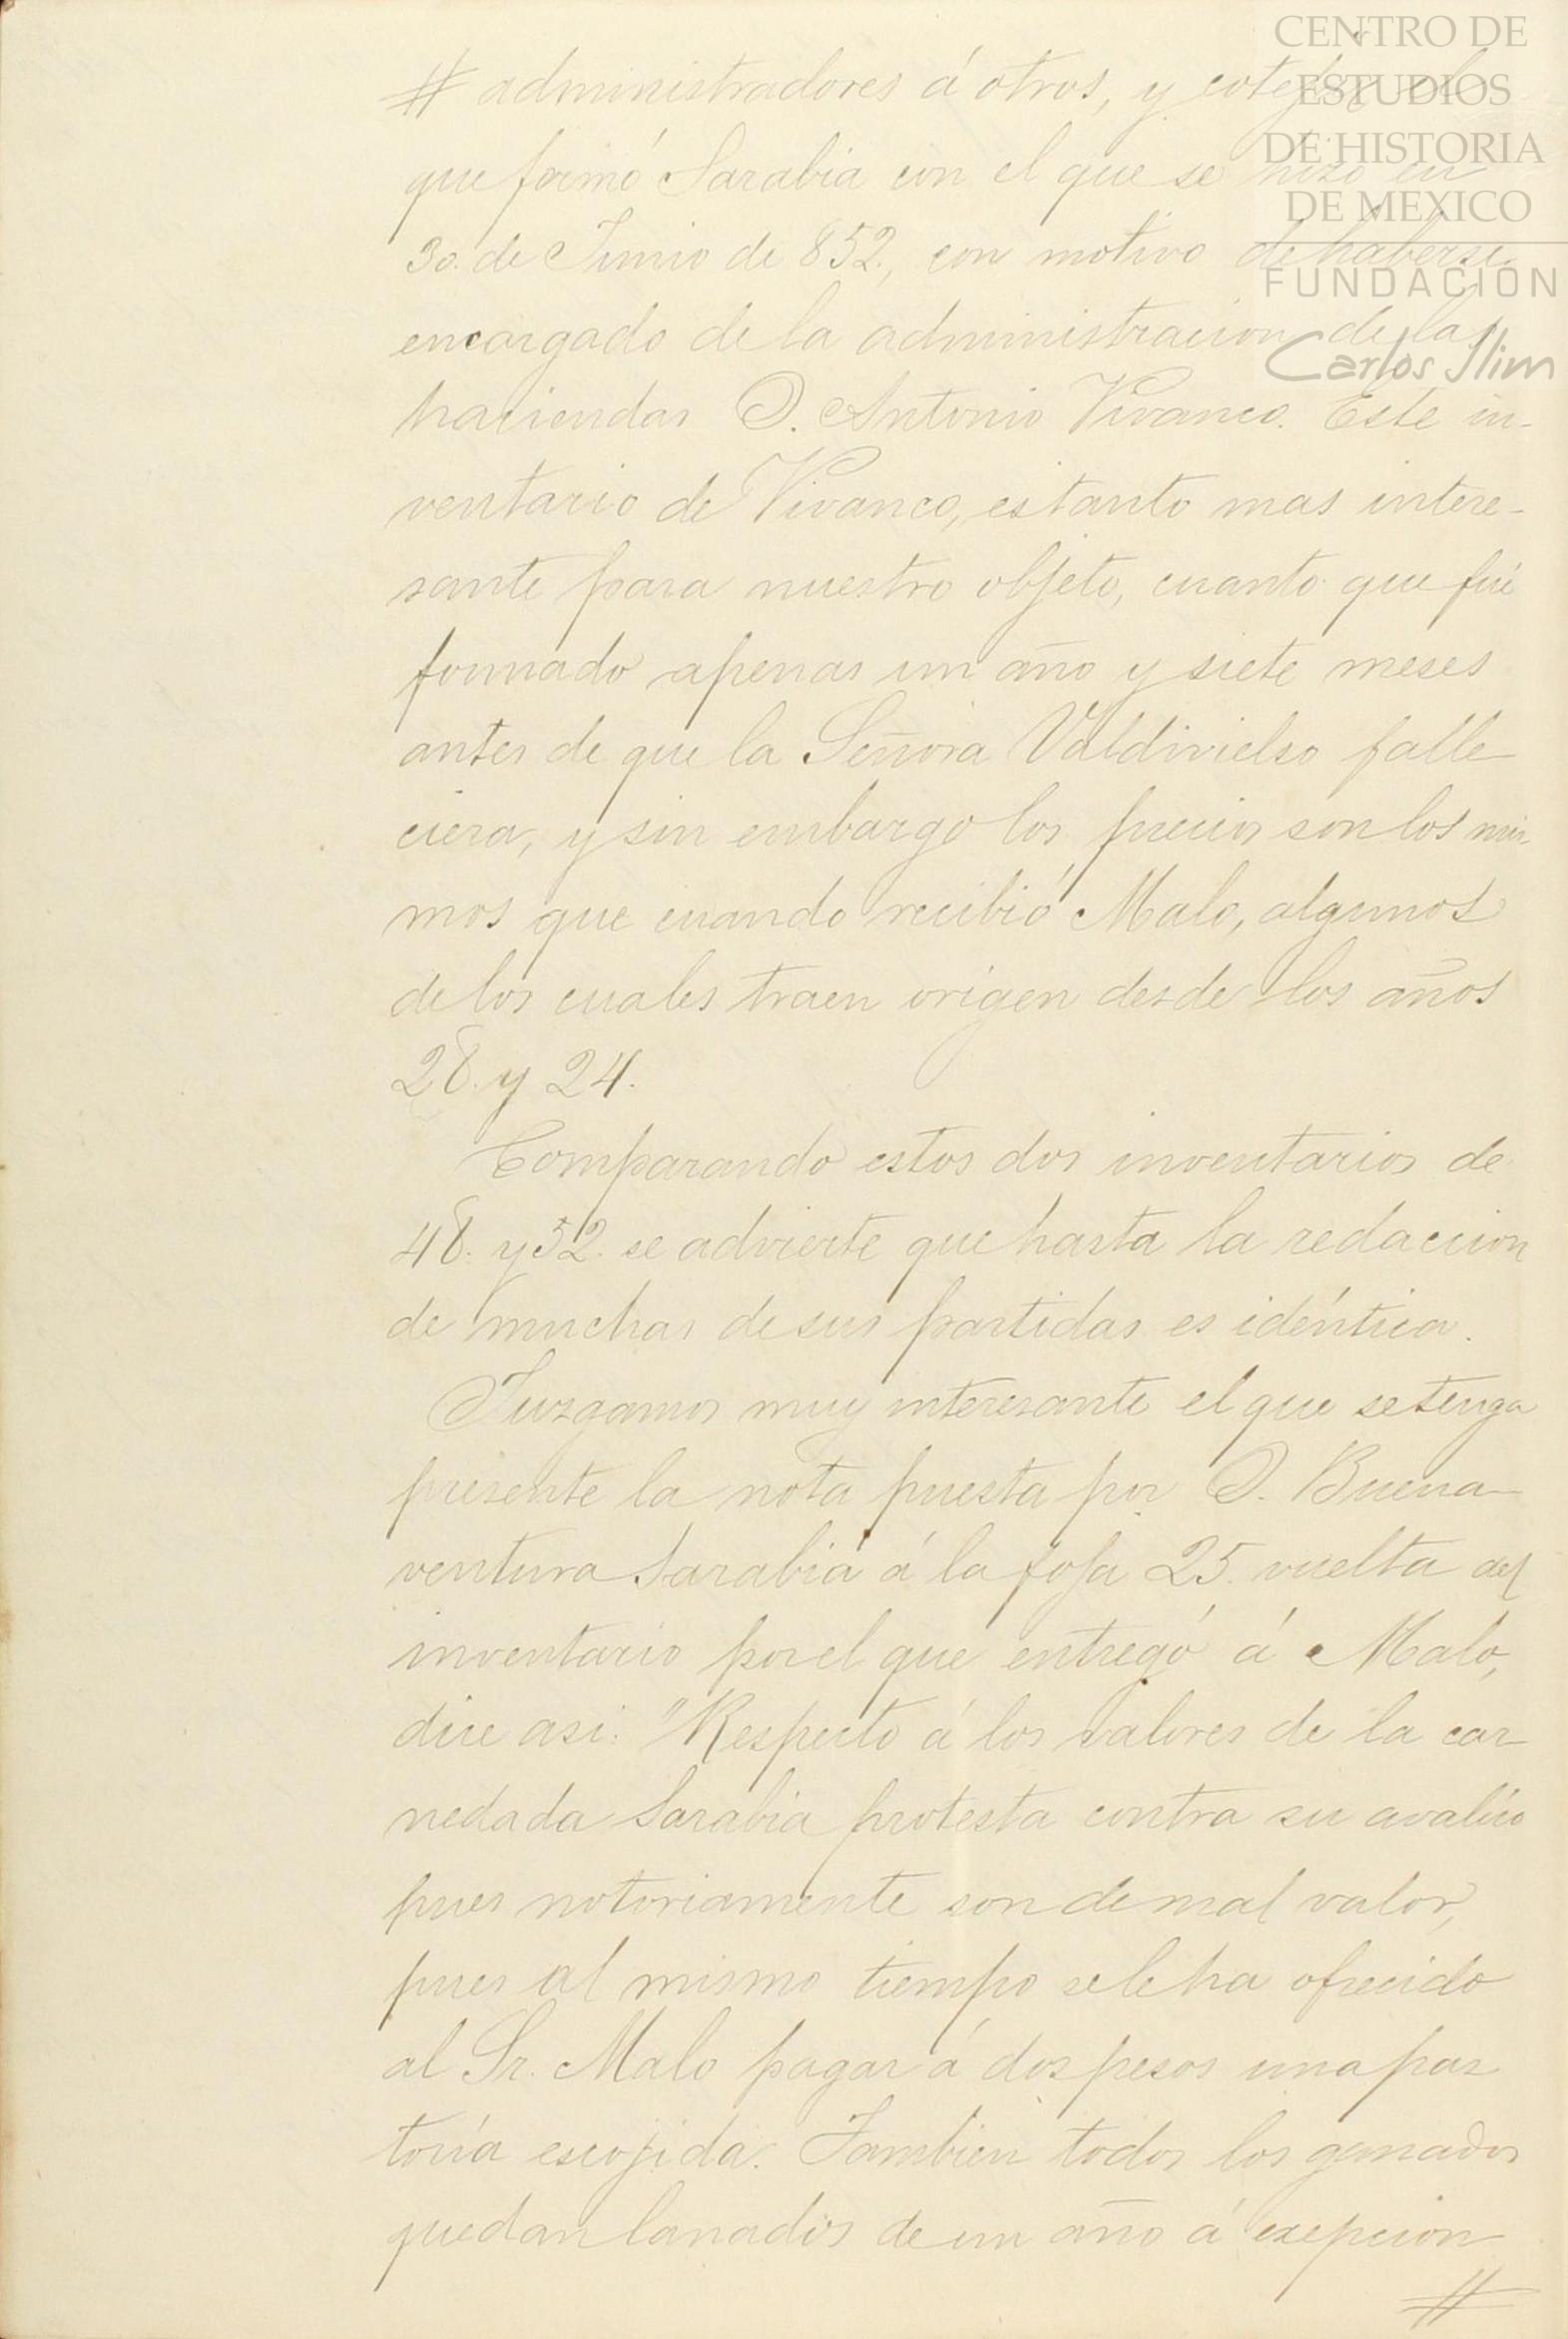 CENTRO DE
ESTUDIOS
DE HISTORIA
DE MEXICO
FUNDACIÓN
Carlos Slim
# administradores á otros, y cotejar el
que formó Sarabia con el que se hizo en
30. de Junio de 852., con motivo de haberse
encargado de la administracion de las
haciendas D. Antonio Vivanco. Este in-
ventario de Vivanco, es tanto mas intere-
sante para nuestro objeto, cuanto que fué
formado apenas un año y siete meses
antes de que la Señora Valdivielso falle-
ciera, y sin embargo los precios son los mis-
mos que cuando recibió Malo, algunos
de los cuales traen origen desde los años
28. y 24.
Comparando estos dos inventarios de
48. y 52. se advierte que hasta la redaccion
de muchas de sus partidas es idéntica.
Juzgamos muy interesante el que se tenga
presente la nota puesta por D. Buena-
ventura Sarabia á la foja 25. vuelta del
inventario por el que entregó á Malo,
dice asi: "Respecto á los valores de la car-
nedada Sarabia protesta contra su avalúo
pues notoriamente son de mal valor,
pues al mismo tiempo se le ha ofrecido
al Sr. Malo pagar á dos pesos una pas-
toría escojida. Tambien todos los ganados
quedan lanados de un año á exepcion
#